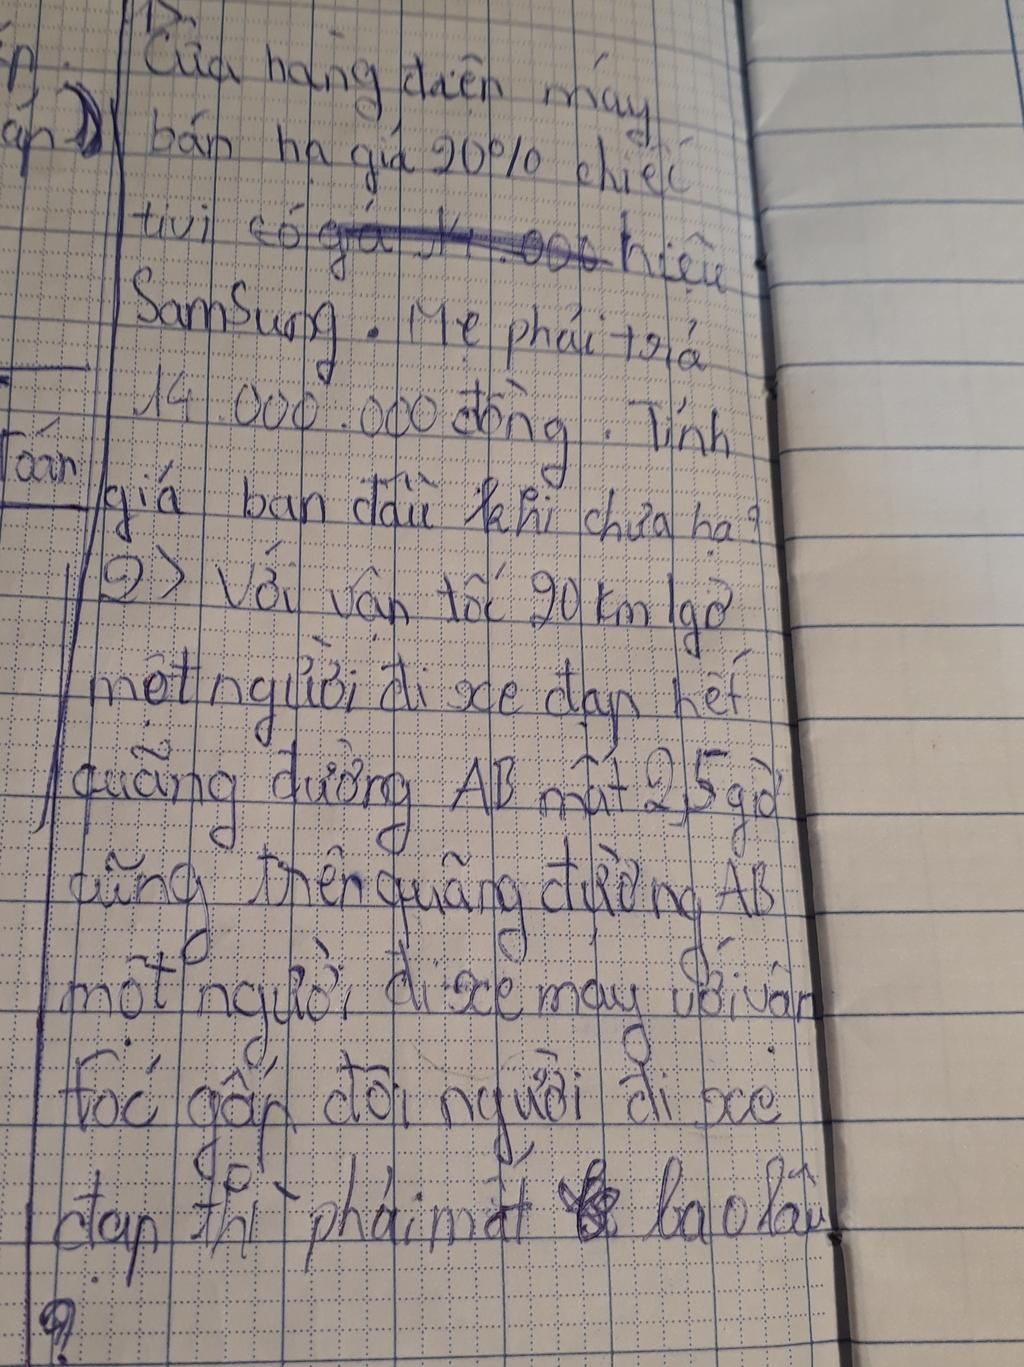 1>
Cửa hàng điện máy
bán hạ giá 20% chiếc
tivi có giá 14.000 hiệu
SamSung. Mẹ phải trả
14.000.000 đồng. Tính
Toán
giá ban đầu khi chưa hạ?
2> Với vận tốc 20 km/gờ
một người đi xe đạp hết
quãng đường AB mất 2,5 gờ
cũng trên quãng đường AB
một người đi xe máy với vận
tốc gấp đôi người đi xe
đạp thì phải mất bao lâu
?